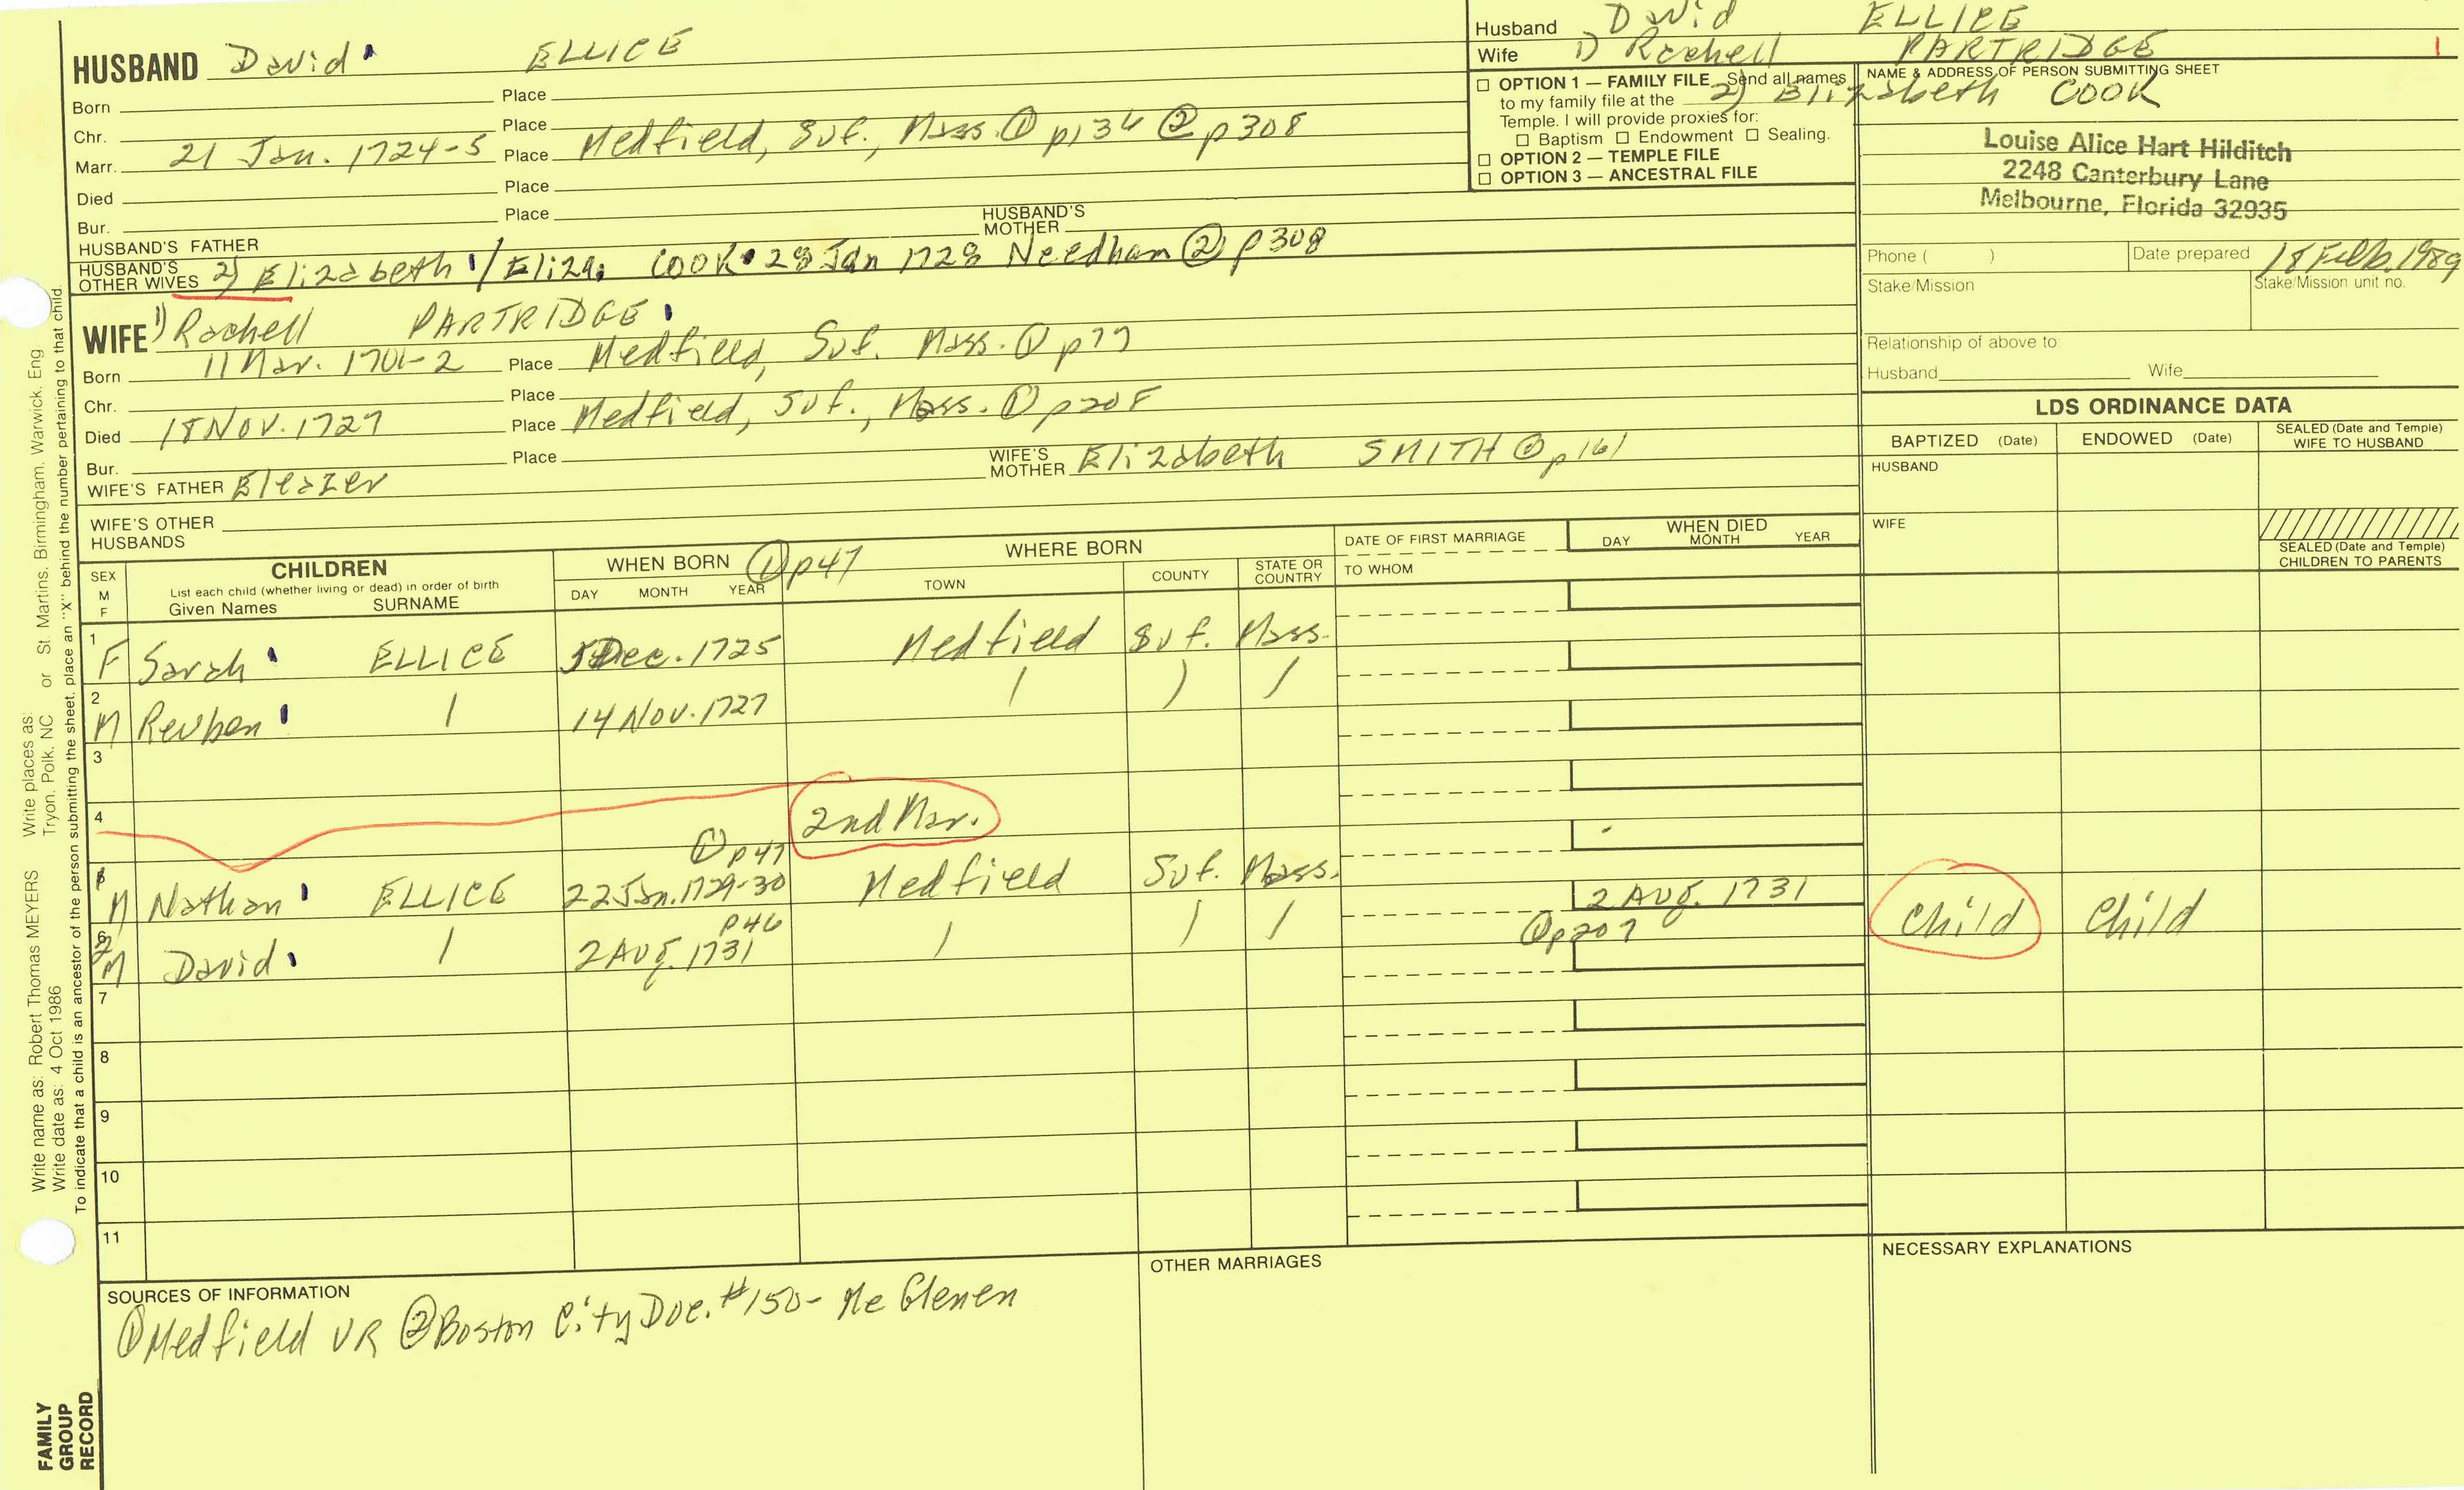 Husband David ELLICE
Wife 1) Rachell PARTRIDGE 1
HUSBAND David ELLICE
Born Place
Chr. Place
Marr. 21 Jan. 1724-5 Place Medfield, Suf., Mass. ① p134 ② p308
Died Place
Bur. Place
HUSBAND'S FATHER HUSBAND'S MOTHER
HUSBAND'S OTHER WIVES 2) Elizabeth / Eliza. COOK 28 Jan 1728 Needham ② p308
☐ OPTION 1 — FAMILY FILE Send all names
to my family file at the
Temple. I will provide proxies for:
☐ Baptism ☐ Endowment ☐ Sealing.
☐ OPTION 2 — TEMPLE FILE
☐ OPTION 3 — ANCESTRAL FILE
NAME & ADDRESS OF PERSON SUBMITTING SHEET
2) Elizabeth COOK
Louise Alice Hart Hilditch
2248 Canterbury Lane
Melbourne, Florida 32935
Phone ( ) Date prepared 18 Feb. 1989
Stake/Mission Stake/Mission unit no.
Relationship of above to:
Husband Wife
WIFE 1) Rachell PARTRIDGE
Born 11 Mar. 1701-2 Place Medfield, Suf. Mass. ① p77
Chr. Place
Died 18 Nov. 1727 Place Medfield, Suf., Mass. ① p208
Bur. Place
WIFE'S FATHER Eleazer WIFE'S MOTHER Elizabeth SMITH ① p161
WIFE'S OTHER HUSBANDS
LDS ORDINANCE DATA
BAPTIZED (Date) ENDOWED (Date) SEALED (Date and Temple) WIFE TO HUSBAND
HUSBAND
WIFE
SEALED (Date and Temple) CHILDREN TO PARENTS
SEX M F
CHILDREN
List each child (whether living or dead) in order of birth
Given Names SURNAME
WHEN BORN ① p47
DAY MONTH YEAR
WHERE BORN
TOWN COUNTY STATE OR COUNTRY
DATE OF FIRST MARRIAGE
TO WHOM
WHEN DIED
DAY MONTH YEAR
1 F Sarah ELLICE 5 Dec. 1725 Medfield Suf. Mass.
2 M Reuben / 14 Nov. 1727 / / /
3
4 2nd Mar.
① p47
M Nathan ELLICE 22 Jan. 1729-30 Medfield Suf. Mass. 2 Aug. 1731 Child Child
p46 ① p207
M David / 2 Aug. 1731 / / /
7
8
9
10
11
SOURCES OF INFORMATION
① Medfield VR ② Boston City Doc. #150- Mc Glenen
OTHER MARRIAGES
NECESSARY EXPLANATIONS
FAMILY GROUP RECORD
Write name as: Robert Thomas MEYERS Write places as: Tryon, Polk, NC or St. Martins, Birmingham, Warwick, Eng
Write date as: 4 Oct 1986
To indicate that a child is an ancestor of the person submitting the sheet, place an "X" behind the number pertaining to that child.